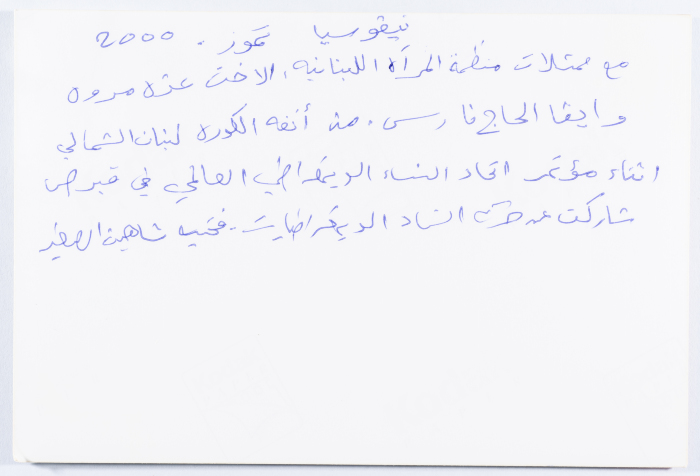 نيقوسيا تموز. 2000
مع ممثلات منظمة المرأة اللبنانيه، الاخت عزه مروه
وايقا الحاج فارس. من أنفه الكوره لبنان الشمالي
اثناء مؤتمر اتحاد النساء الديمقراطي العالمي في قبرص
شاركت عن حركة النساء الديمقراطيات. فتحيه شاهين الصغير